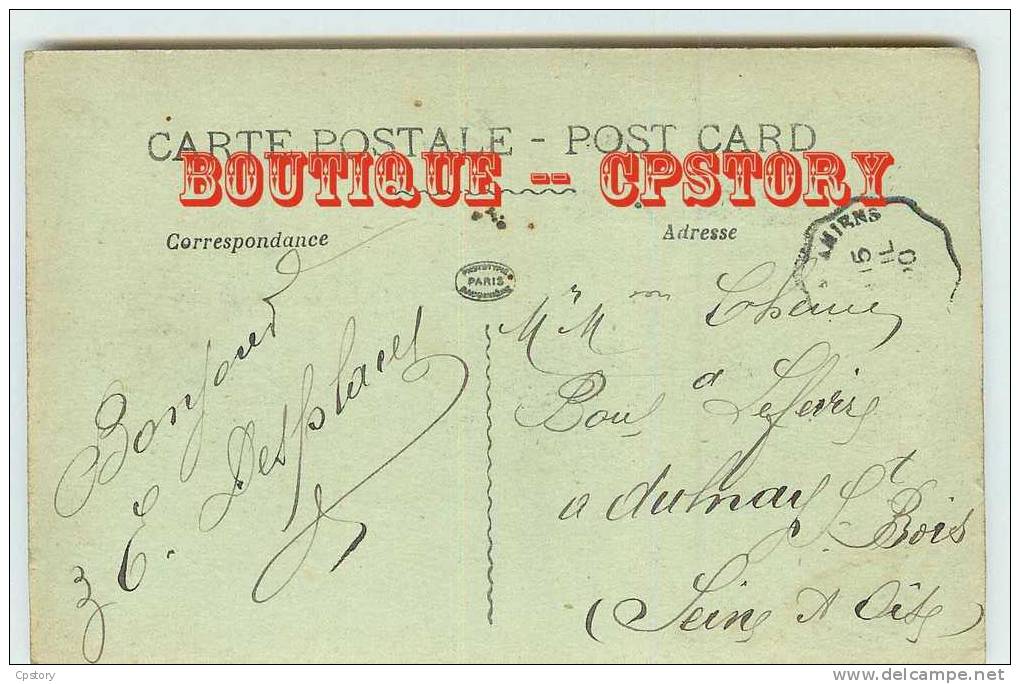 CARTE POSTALE - POST CARD
BOUTIQUE -- CPSTORY
Correspondance
Adresse
AMIENS
15
PARIS
Bonjour
E. Desplaces
Mr Mon
a
Boul Lefevre
a Aulnay St
Bois
(Seine et Oise)
Cpstory
delcampe.net